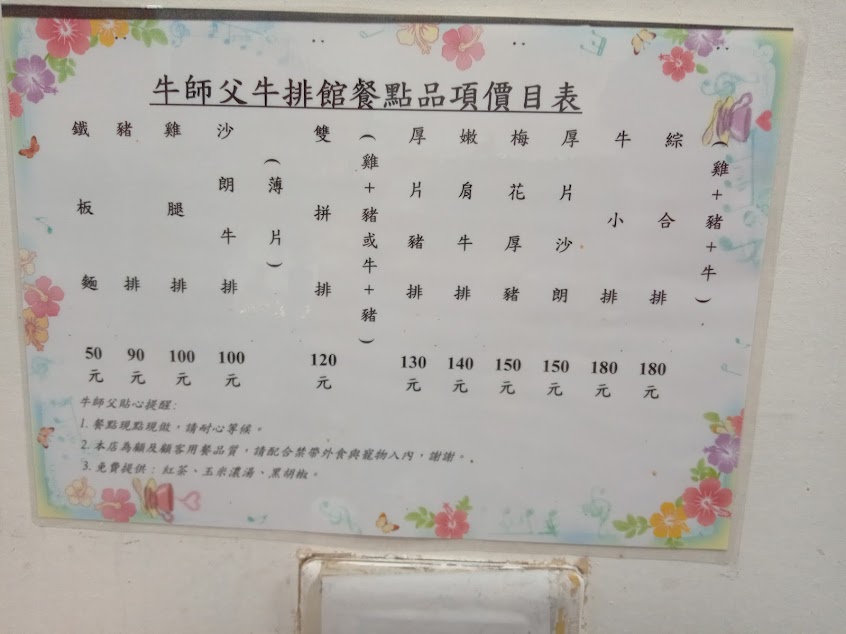 牛師父牛排館餐點品項價目表
鐵板麵 50元
豬排 90元
雞腿排 100元
沙朗牛排(薄片) 100元
雙拼排(雞+豬或牛+豬) 120元
厚片豬排 130元
嫩肩牛排 140元
梅花厚豬 150元
厚片沙朗 150元
牛小排 180元
綜合排(雞+豬+牛) 180元
牛師父貼心提醒:
1. 餐點現點現做,請耐心等候。
2. 本店為顧及顧客用餐品質,請配合禁帶外食與寵物入內,謝謝。.
3. 免費提供:紅茶、玉米濃湯、黑胡椒。